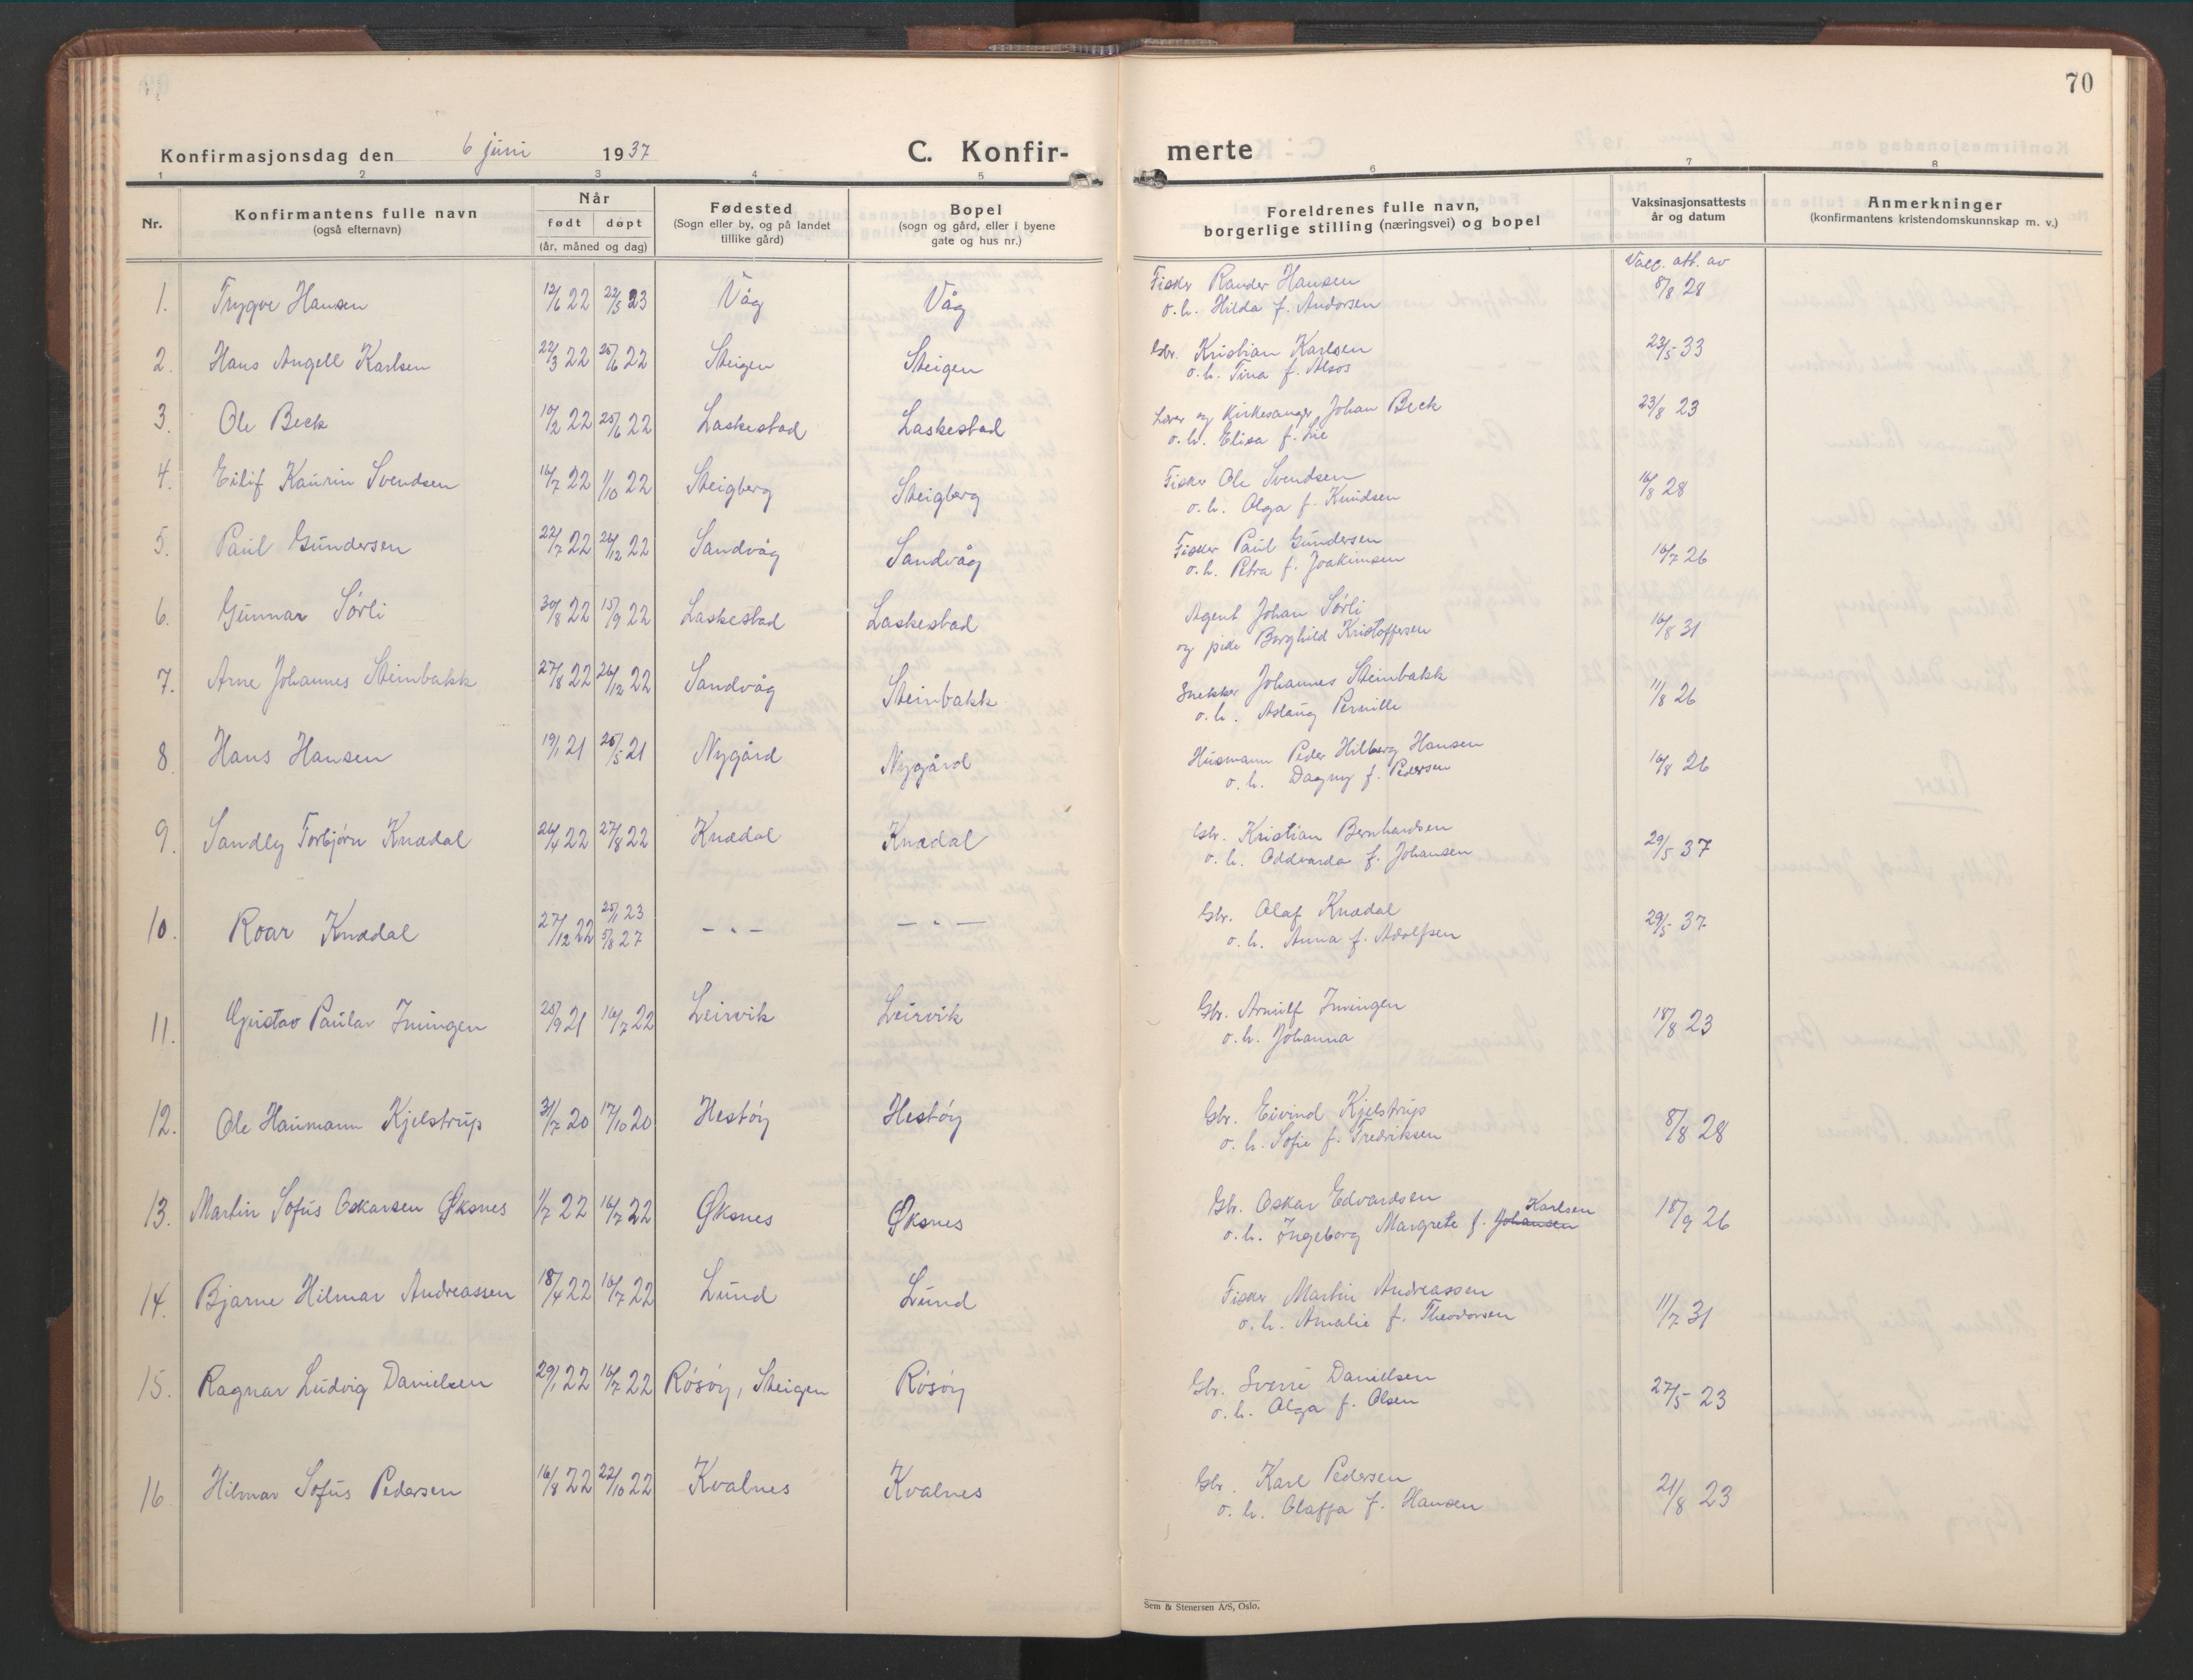 70
Konfirmasjonsdag den 6 juni 1937
C. Konfir-
merte
1 2 3 4 5 6 7 8
Nr.
Konfirmantens fulle navn
(også efternavn)
Når
født døpt
(år, måned og dag)
Fødested
(Sogn eller by, og på landet
tillike gård)
Bopel
(sogn og gård, eller i byene
gate og hus nr.)
Foreldrenes fulle navn,
borgerlige stilling (næringsvei) og bopel
Vaksinasjonsattests
år og datum
Anmerkninger
(konfirmantens kristendomskunnskap m. v.)
Vacc. att. av
1. Trygve Hansen 12/6 22 22/5 23 Våg Våg Fisker Rander Hansen 8/8 28
o. h. Hilda f. Andorsen
2. Hans Angell Karlsen 22/3 22 25/6 22 Steigen Steigen Gbr. Kristian Karlsen 23/5 33
o. h. Tina f. Alsos
3. Ole Beck 10/2 22 25/6 22 Laskestad Laskestad Lærer og kirkesanger Johan Beck 23/8 23
o. h. Elisa f. Lie
4. Eilif Kaurin Svendsen 16/7 22 1/10 22 Steigberg Steigberg Fisker Ole Svendsen 16/8 28
o. h. Olga f. Knudsen
5. Paul Gundersen 22/7 22 26/12 22 Sandvåg Sandvåg Fisker Paul Gundersen 16/7 26
o. h. Petra f. Joakimsen
6. Gunnar Sørli 30/8 22 15/9 22 Laskestad Laskestad Agent Johan Sørli 16/8 31
og pike Borghild Kristoffersen
7. Arne Johannes Steinbakk 27/8 22 26/12 22 Sandvåg Steinbakk Snekker Johannes Steinbakk 11/8 26
o. h. Aslaug Pernille
8. Hans Hansen 19/1 21 26/5 21 Nygård Nygård Husmann Peder Hilberg Hansen 16/8 26
o. h. Dagny f. Pedersen
9. Sandly Torbjørn Knædal 26/4 22 27/8 22 Knædal Knædal Gbr. Kristian Bernhardsen 29/5 37
o. h. Oddvarda f. Johansen
10. Roar Knædal 27/12 22 25/1 23 5/8 27 - " - - " - Gbr. Olaf Knædal 29/5 37
o. h. Anna f. Adolfsen
11. Gustav Paular Iningen 25/9 21 16/7 22 Leirvik Leirvik Gbr. Arnulf Iningen 18/8 23
o. h. Johanna
12. Ole Haumann Kjelstrup 31/7 20 17/10 20 Hestøy Hestøy Gbr. Eivind Kjelstrup 8/8 28
o. h. Sofie f. Fredriksen
13. Martin Sofus Oskarsen Øksnes 1/7 22 16/7 22 Øksnes Øksnes Gbr. Oskar Edvardsen 18/9 26
o. h. Ingeborg Margrete f. Johansen Karlsen
14. Bjarne Hilmar Andreassen 18/4 22 16/7 22 Lund Lund Fisker Martin Andreassen 11/7 31
o. h. Amalie f. Theodorsen
15. Ragnar Ludvig Danielsen 29/1 22 16/7 22 Røsøy, Steigen Røsøy Gbr. Sverre Danielsen 27/5 23
o. h. Olga f. Olsen
16 Hilmar Sofus Pedersen 16/8 22 22/10 22 Kvalnes Kvalnes Gbr. Karl Pedersen 21/8 23
o. h. Olaffa f. Hansen
Sem & Stenersen A/S, Oslo.